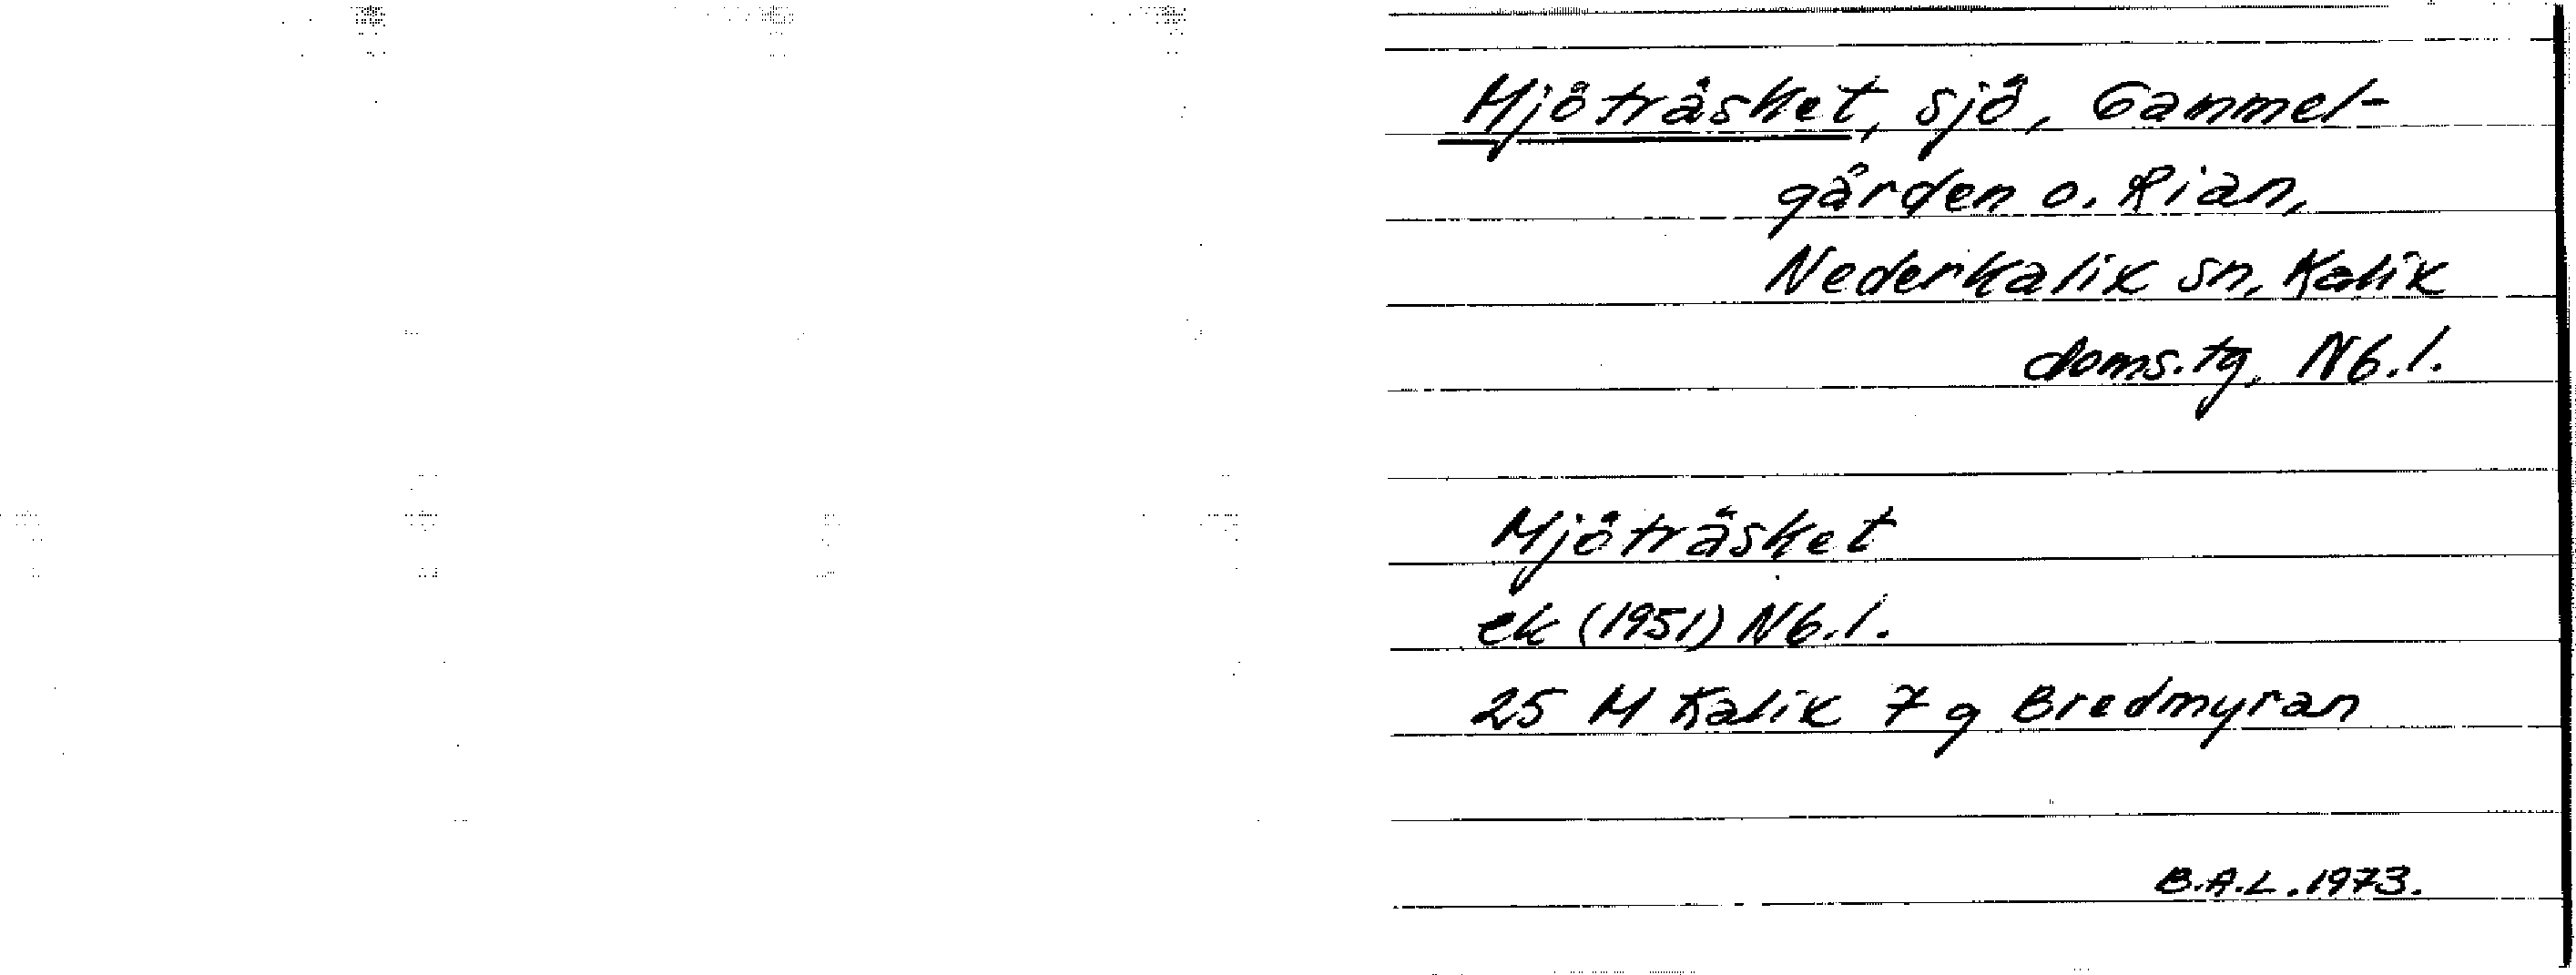 Mjöträsket, sjö, Gammel-
gården o. Rian,
Nederkalix sn, Kalix
doms.tg, Nb.l.
Mjöträsket
ek (1951) Nb.l.
25 M Kalix 7 g Bredmyran
B.A.L. 1973.